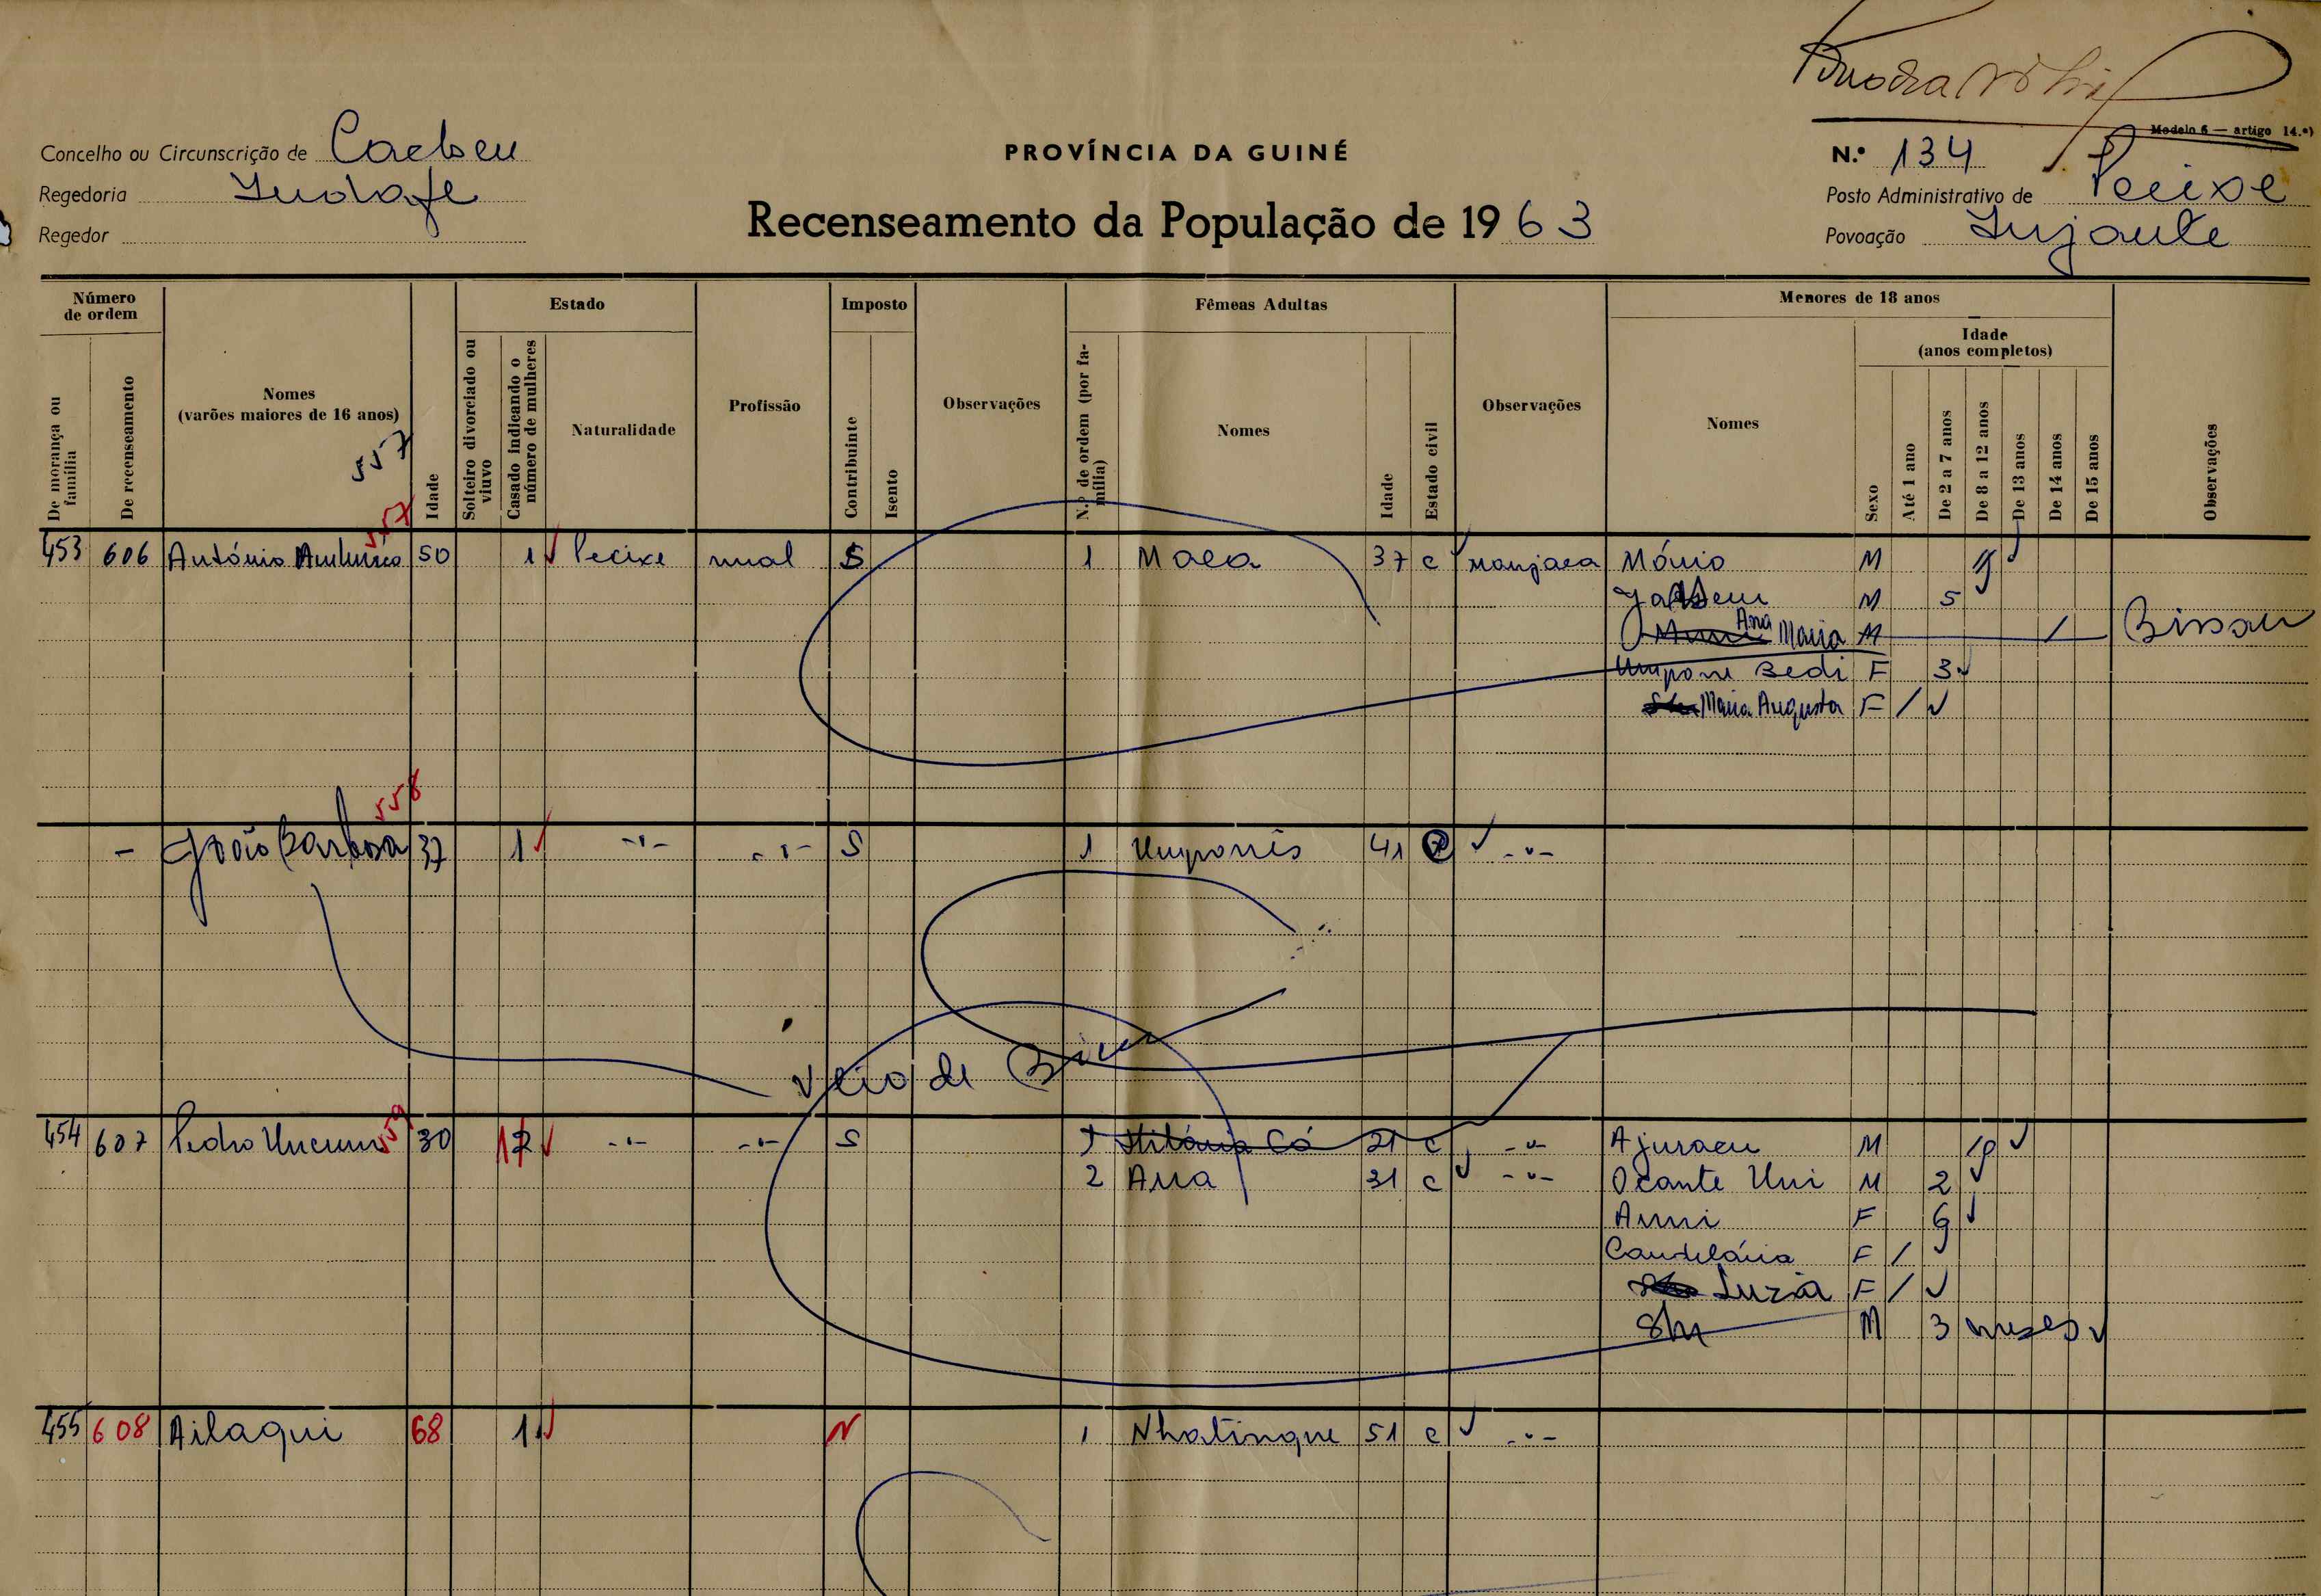 Modelo 6 — artigo 14.º)
Concelho ou Circunscrição de Cacheu
PROVÍNCIA DA GUINÉ
N.º 134
Regedoria
Posto Administrativo de Pecixe
Recenseamento da População de 1963
Regedor
Povoação Injante
Número de ordem
Estado
Imposto
Fêmeas Adultas
Menores de 18 anos
Idade (anos completos)
De morança ou família
De recenseamento
Nomes (varões maiores de 16 anos)
Idade
Solteiro divorciado ou viuvo
Casado indicando o número de mulheres
Naturalidade
Profissão
Contribuinte
Isento
Observações
N.º de ordem (por família)
Nomes
Idade
Estado civil
Observações
Nomes
Sexo
Até 1 ano
De 2 a 7 anos
De 8 a 12 anos
De 13 anos
De 14 anos
De 15 anos
Observações
557
557
453 606 António 50 1 Pecixe rural S 1 Maca 37 c manjaca Mónio M 9
M 5
Ana Maria M Bissau
Bedi F 3
Maria Augusta F /
558
- João Barbosa 37 1 -"- -"- S 1 Umponis 41 -"-
Veio de
559
454 607 Pedro 30 1 2 -"- -"- S 1 Có 21 c -"- Ajuracu M 10
2 Ana 31 c -"- Ocante Uni M 2
Anni F 6
Candelária F /
Luzia F /
S/n M 3 meses
455 608 Ailaqui 68 1 N 1 Nhatinque 51 c -"-